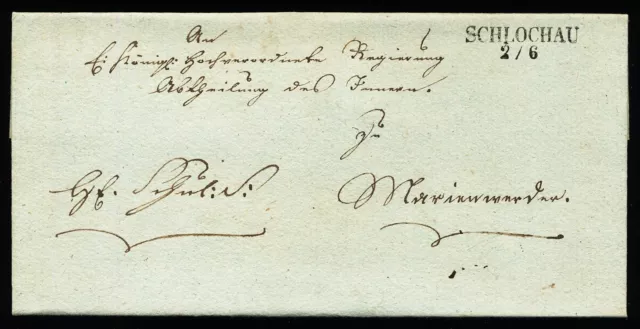 An
SCHLOCHAU
2/6
Ei Königl: Hochverordnete Regierung
Abtheilung des Innern.
zu
Schul: S:
Marienwerder.